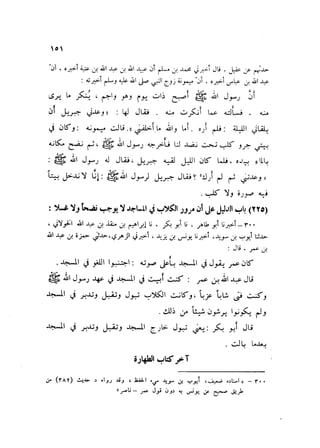 ١٥١
حدثهم عن عقيل ، قال أخبرني محمد بن مسلم أن عبد الله بن عبد الله بن عتبة أخبره ، أن
عبد الله بن عباس أخبره ، أن ميمونة زوج النبي صلى الله عليه وسلم أخبرته :
أن رسول الله ﷺ أصبح ذات يوم وهو واجم ، ثم
منه ، فسألته عما أنكرت منه . فقال لها : وعدني جبريل أن
يلقاني الليلة : فلم أره ، أما والله ما أخلفني ، قالت ميمونة : وكان في
بيتي جرو كلب تحت نضد لنا فأخرجه رسول الله ﷺ ، ثم نضح مكانه
بالماء بيده ، فلما كان الليل لقيه جبريل ، فقال له رسول الله ﷺ :
وعدتني ثم لم أرك؟ فقال جبريل لرسول الله ﷺ : إنا لا ندخل بيتاً
فيه صورة ولا كلب .
(٢٢٥) باب الدليل على أن مرور الكلاب في المساجد لا يوجب نضحاً ولا غسلاً :
٣٠٠ – أخبرنا أبو طاهر ، نا أبو بكر ، نا إبراهيم بن منقذ بن عبد الله الخولاني ،
حدثنا أيوب بن سويد ، أخبرنا يونس بن يزيد ، أخبرني الزهري ، حدثني حمزة بن عبد الله
بن عمر ، قال :
كان عمر يقول في المسجد بأعلى صوته : اجتنبوا اللغو في المسجد .
قال عبد الله بن عمر : كنت أبيت في المسجد على عهد رسول الله ﷺ
وكنت فتى شاباً عزباً ، وكانت الكلاب تبول وتقبل وتدبر في المسجد
ولم يكونوا يرشون شيئاً من ذلك .
قال أبو بكر : يعني تبول خارج المسجد وتقبل وتدبر في المسجد
بعدما بالت .
آخر كتاب الطهارة
٣٠٠ – « إسناده ضعيف ، أيوب بن سويد سيء الحفظ ، وقد رواه د حديث (٣٨٢) من
طريق صحيح عن يونس به دون قول عمر – ناصر »